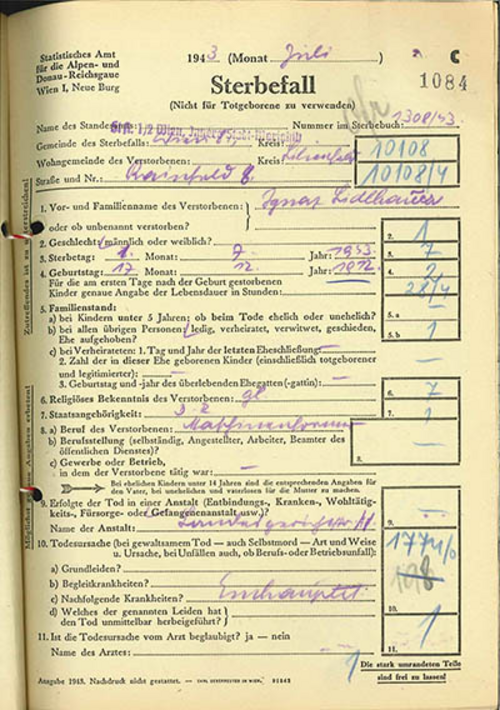 Statistisches Amt
für die Alpen- und
Donau-Reichsgaue
Wien I, Neue Burg
1943 (Monat Juli)
C
1084
Sterbefall
(Nicht für Totgeborene zu verwenden)
Name des Stande Nummer im Sterbebuch: 1308/43.
Gemeinde des Sterbefalls: Kreis: 10108
Wohngemeinde des Verstorbenen: Kreis: Lilienfeld 10108/4
Straße und Nr.: Rainfeld 8.
1. Vor- und Familienname des Verstorbenen: Ignaz
oder ob unbenannt verstorben?
2. Geschlecht (männlich oder weiblich? 2. 1
3. Sterbetag: Monat: 7. Jahr: 1943. 3. 7
4. Geburtstag: 17 Monat: 12. Jahr: 1912. 4. 2
Für die am ersten Tage nach der Geburt gestorbenen
Kinder genaue Angabe der Lebensdauer in Stunden: 28/4
5. Familienstand:
a) bei Kindern unter 5 Jahren: ob beim Tode ehelich oder unehelich? 5. a —
b) bei allen übrigen Personen: ledig, verheiratet, verwitwet, geschieden, 5. b 1
Ehe aufgehoben?
c) bei Verheirateten: 1. Tag und Jahr der letzten Eheschließung —
2. Zahl der in dieser Ehe geborenen Kinder (einschließlich totgeborener —
und legitimierter): —
3. Geburtstag und -jahr des überlebenden Ehegatten (-gattin): — —
6. Religiöses Bekenntnis des Verstorbenen: gl. 6. 7
7. Staatsangehörigkeit: D. R. 7. 1
8. a) Beruf des Verstorbenen: Maschinenformer
b) Berufsstellung (selbständig, Angestellter, Arbeiter, Beamter des —
öffentlichen Dienstes)? 8.
c) Gewerbe oder Betrieb,
in dem der Verstorbene tätig war: —
Bei ehelichen Kindern unter 14 Jahren sind die entsprechenden Angaben für
den Vater, bei unehelichen und vaterlosen für die Mutter zu machen.
9. Erfolgte der Tod in einer Anstalt (Entbindungs-, Kranken-, Wohltätig-
keits-, Fürsorge- oder Gefangenenanstalt usw.)? 9. —
Name der Anstalt:
10. Todesursache (bei gewaltsamem Tod — auch Selbstmord — Art und Weise
u. Ursache, bei Unfällen auch, ob Berufs- oder Betriebsunfall):
a) Grundleiden?
b) Begleitkrankheiten? Enthauptet 198
c) Nachfolgende Krankheiten?
d) Welches der genannten Leiden hat 10.
den Tod unmittelbar herbeigeführt? 1
11. Ist die Todesursache vom Arzt beglaubigt? ja — nein
Name des Arztes: 11.
1 Die stark umrandeten Teile
sind frei zu lassen!
Ausgabe 1943. Nachdruck nicht gestattet.